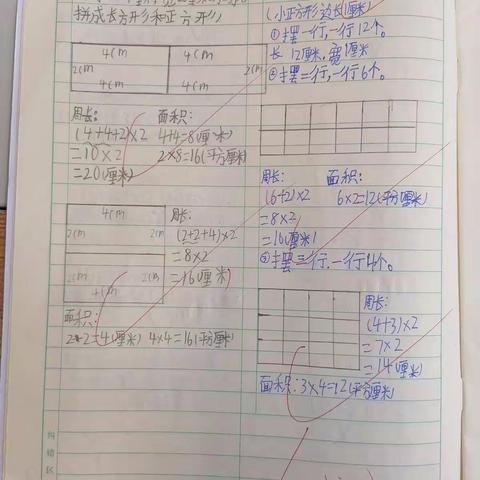 拼成长方形和正方形
4cm 4cm
2cm 2cm
4cm 4cm
周长: 面积:
(4+4+2)×2 4+4=8(厘米)
=10×2 2×8=16(平方厘米)
=20(厘米)
4cm
2cm 2cm
2cm 2cm
4cm
周长:
(2+2+4)×2
=8×2
=16(厘米)
面积:
2+2=4(厘米) 4×4=16(平方厘米)
(小正方形边长1厘米)
①摆一行,一行12个。
长12厘米,宽1厘米
②摆二行,一行6个。
周长: 面积:
(6+2)×2 6×2=12(平方厘米)
=8×2
=16(厘米)
③摆三行,一行4个。
周长:
(4+3)×2
=7×2
=14(厘米)
面积:3×4=12(平方厘米)
纠错区